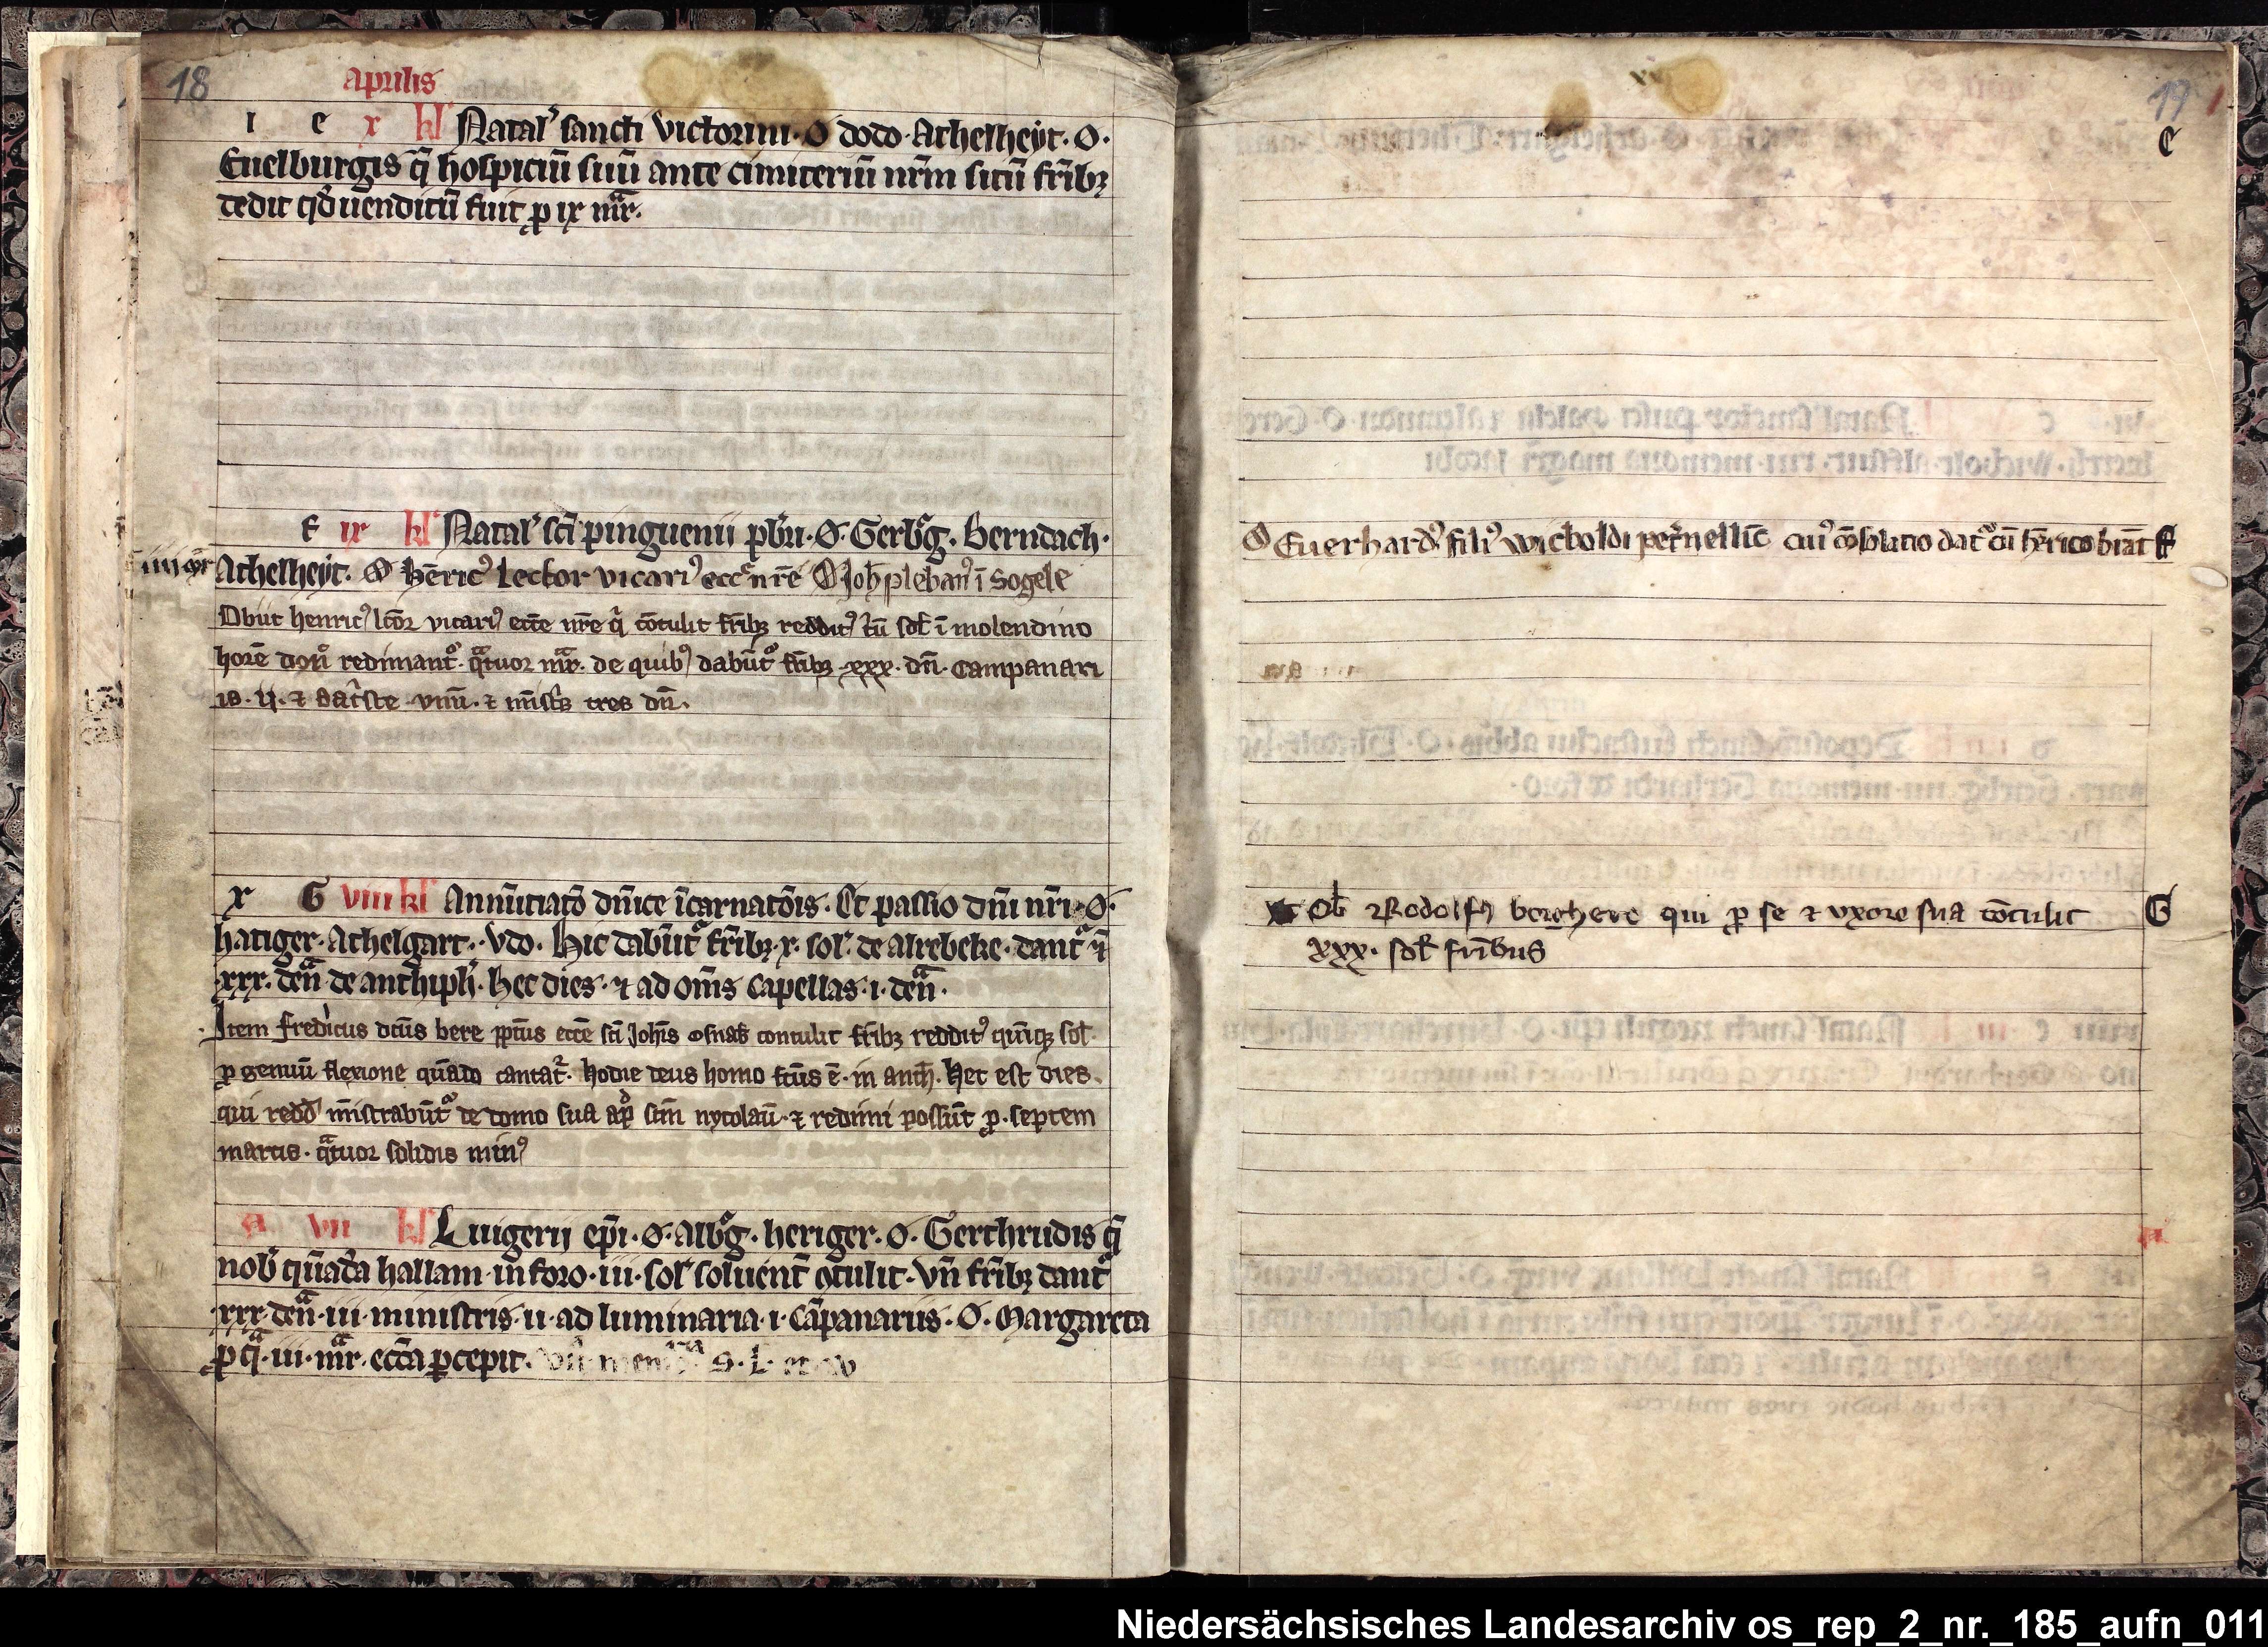 18
aprilis
I e x kl' Natal' sancti victorini · O dodo · Athelheyt · O ·
Euelburgis q̄ hospiciū suū ante cimiteriū nr̄m sitū fr̄ibꝫ
dedit qd' uenditū fuit ꝓ ix mar̄.
F ix kl' Natal' sc̄i pinguenii pb'ri · O · Gerbg̊ · Berndach ·
Athelheyt · O hēricꝰ lector vicariꝰ ecc̄ nr̄e O Joh̄ plebanꝰ ī Sogele
Obiit henricꝰ lc̄or vicariꝰ ecc̄e nr̄e q̄ cōtulit fr̄ibꝫ redditꝰ t'ū sol' ī molendino
horē redimantᵒ · q̄tuor mar̄ · de quibꝰ dabūtᵒ fr̄ibꝫ xxx · dn̄ · Campanari
is · ij · ⁊ · vnū · ⁊ mīst'ꝫ tres dn̄ ·
x G viii kl' Annūtiatō dn̄ice īcarnatōis · Et passio dn̄i nr̄i · O ·
hatiger · Athelgart · vdo · Hic dabūtᵒ fr̄ibꝫ x · sol' de alrebeke · dantᵒ ⁊
xxx · den̄ de anthiph' · hec dies · ⁊ ad om̄s capellas · i · den̄ ·
Item fredicus dc̄us bere pp̄tus ecc̄e sc̄i Joh̄is osnab' contulit fr̄ibꝫ redditꝰ quīqꝫ sol'
ꝓ genuū flexione quādo cantat᷑ · hodie deus homo fc̄us ē · in anth̄ · hec est dies ·
qui redd' mīstrabūtᵒ de domo sua ap̄d sc̄m nycolaū · ⁊ redimi possūt ꝓ · septem
marcis · q̄tuor solidis minꝰ
a vii kl' Luigerij ep̄i · O · Albg̊ · heriger · O · Gerthrudis q̄
nob' quādā hallam in foro · iii · sol' soluent̄ ꝯtulit · vn̄ fr̄ibꝫ dantᵒ
xxx · den̄ · iii · ministris · ii · ad luminaria · i · cāpanariis · O · Margareta
ꝓ q̄ · iii · mar̄ · ecc̄a ꝑcepit ·
19
e
O Euerhardꝰ filiꝰ wicboldi cuiꝰ cōsolatio datᵒ cū hēricꝰ F
Ob' Rodolfꝰ berchere qui ꝓ se ⁊ vxore sua cōtulit G
xxx · sol' fr̄ibus
a
Niedersächsisches Landesarchiv os_rep_2_nr._185_aufn_011